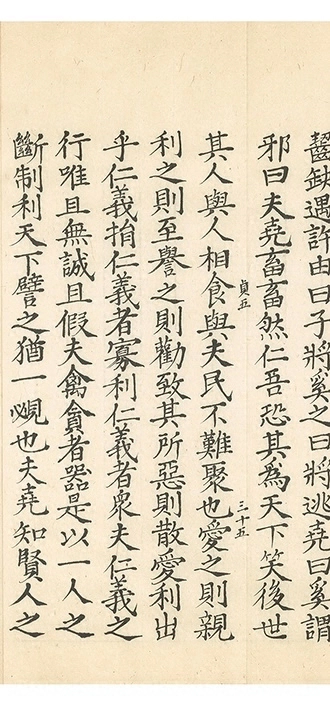 齧缺遇許由曰子將奚之曰將逃堯曰奚謂
邪曰夫堯畜畜然仁吾恐其為天下笑後世
貞五
三十五
其人與人相食與夫民不難聚也愛之則親
利之則至譽之則勸致其所惡則散愛利出
乎仁義捐仁義者寡利仁義者衆夫仁義之
行唯且無誠且假夫禽貪者器是以一人之
斷制利天下譬之猶一覕也夫堯知賢人之